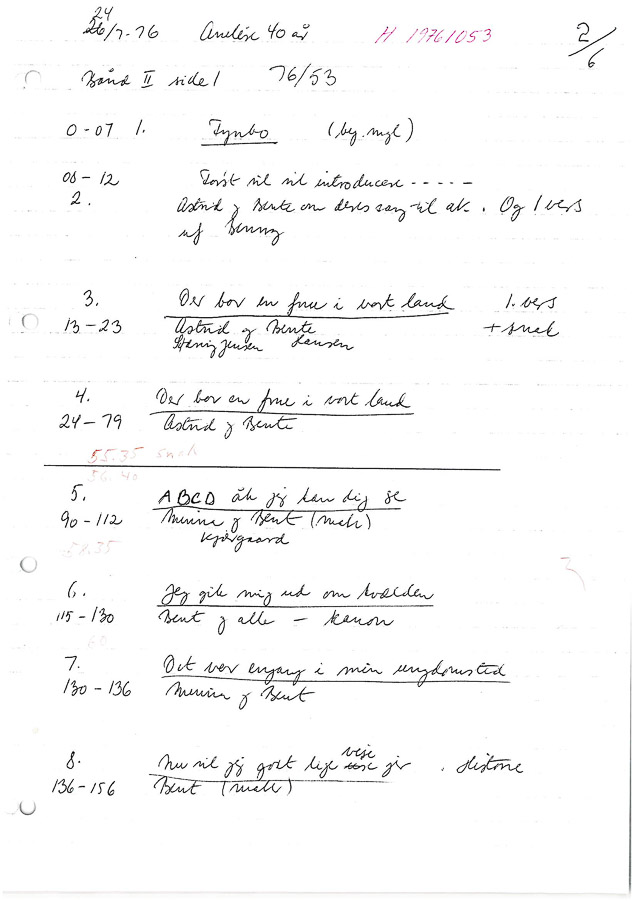 24
26/7-76 Anelise 40 år H 1976/053 2/6
Bånd II side 1 76/53
0-07 1. Tynbo (beg. mgl)
08-12 Først vil vil introducere -----
2. Astrid og Bente om deres sang til ak. Og 1 vers
af Benny
3. Der bor en frue i vort land 1. vers
13-23 Astrid og Bente + snak
Jensen Hansen
4. Der bor en frue i vort land
24-79 Astrid og Bente
55.35 snak
56.40
5. ABCD åh jeg kan dig se
90-112 Minna og Bent (male)
Kjærgaard
58.35
6. Jeg gik mig ud om kvælden
115-130 Bent og alle - kanon
60
7. Det var engang i min ungdomstid
130-136 Minna og Bent
vise
8. Nu vil jeg godt lige vise jer . Historie
136-156 Bent (male)